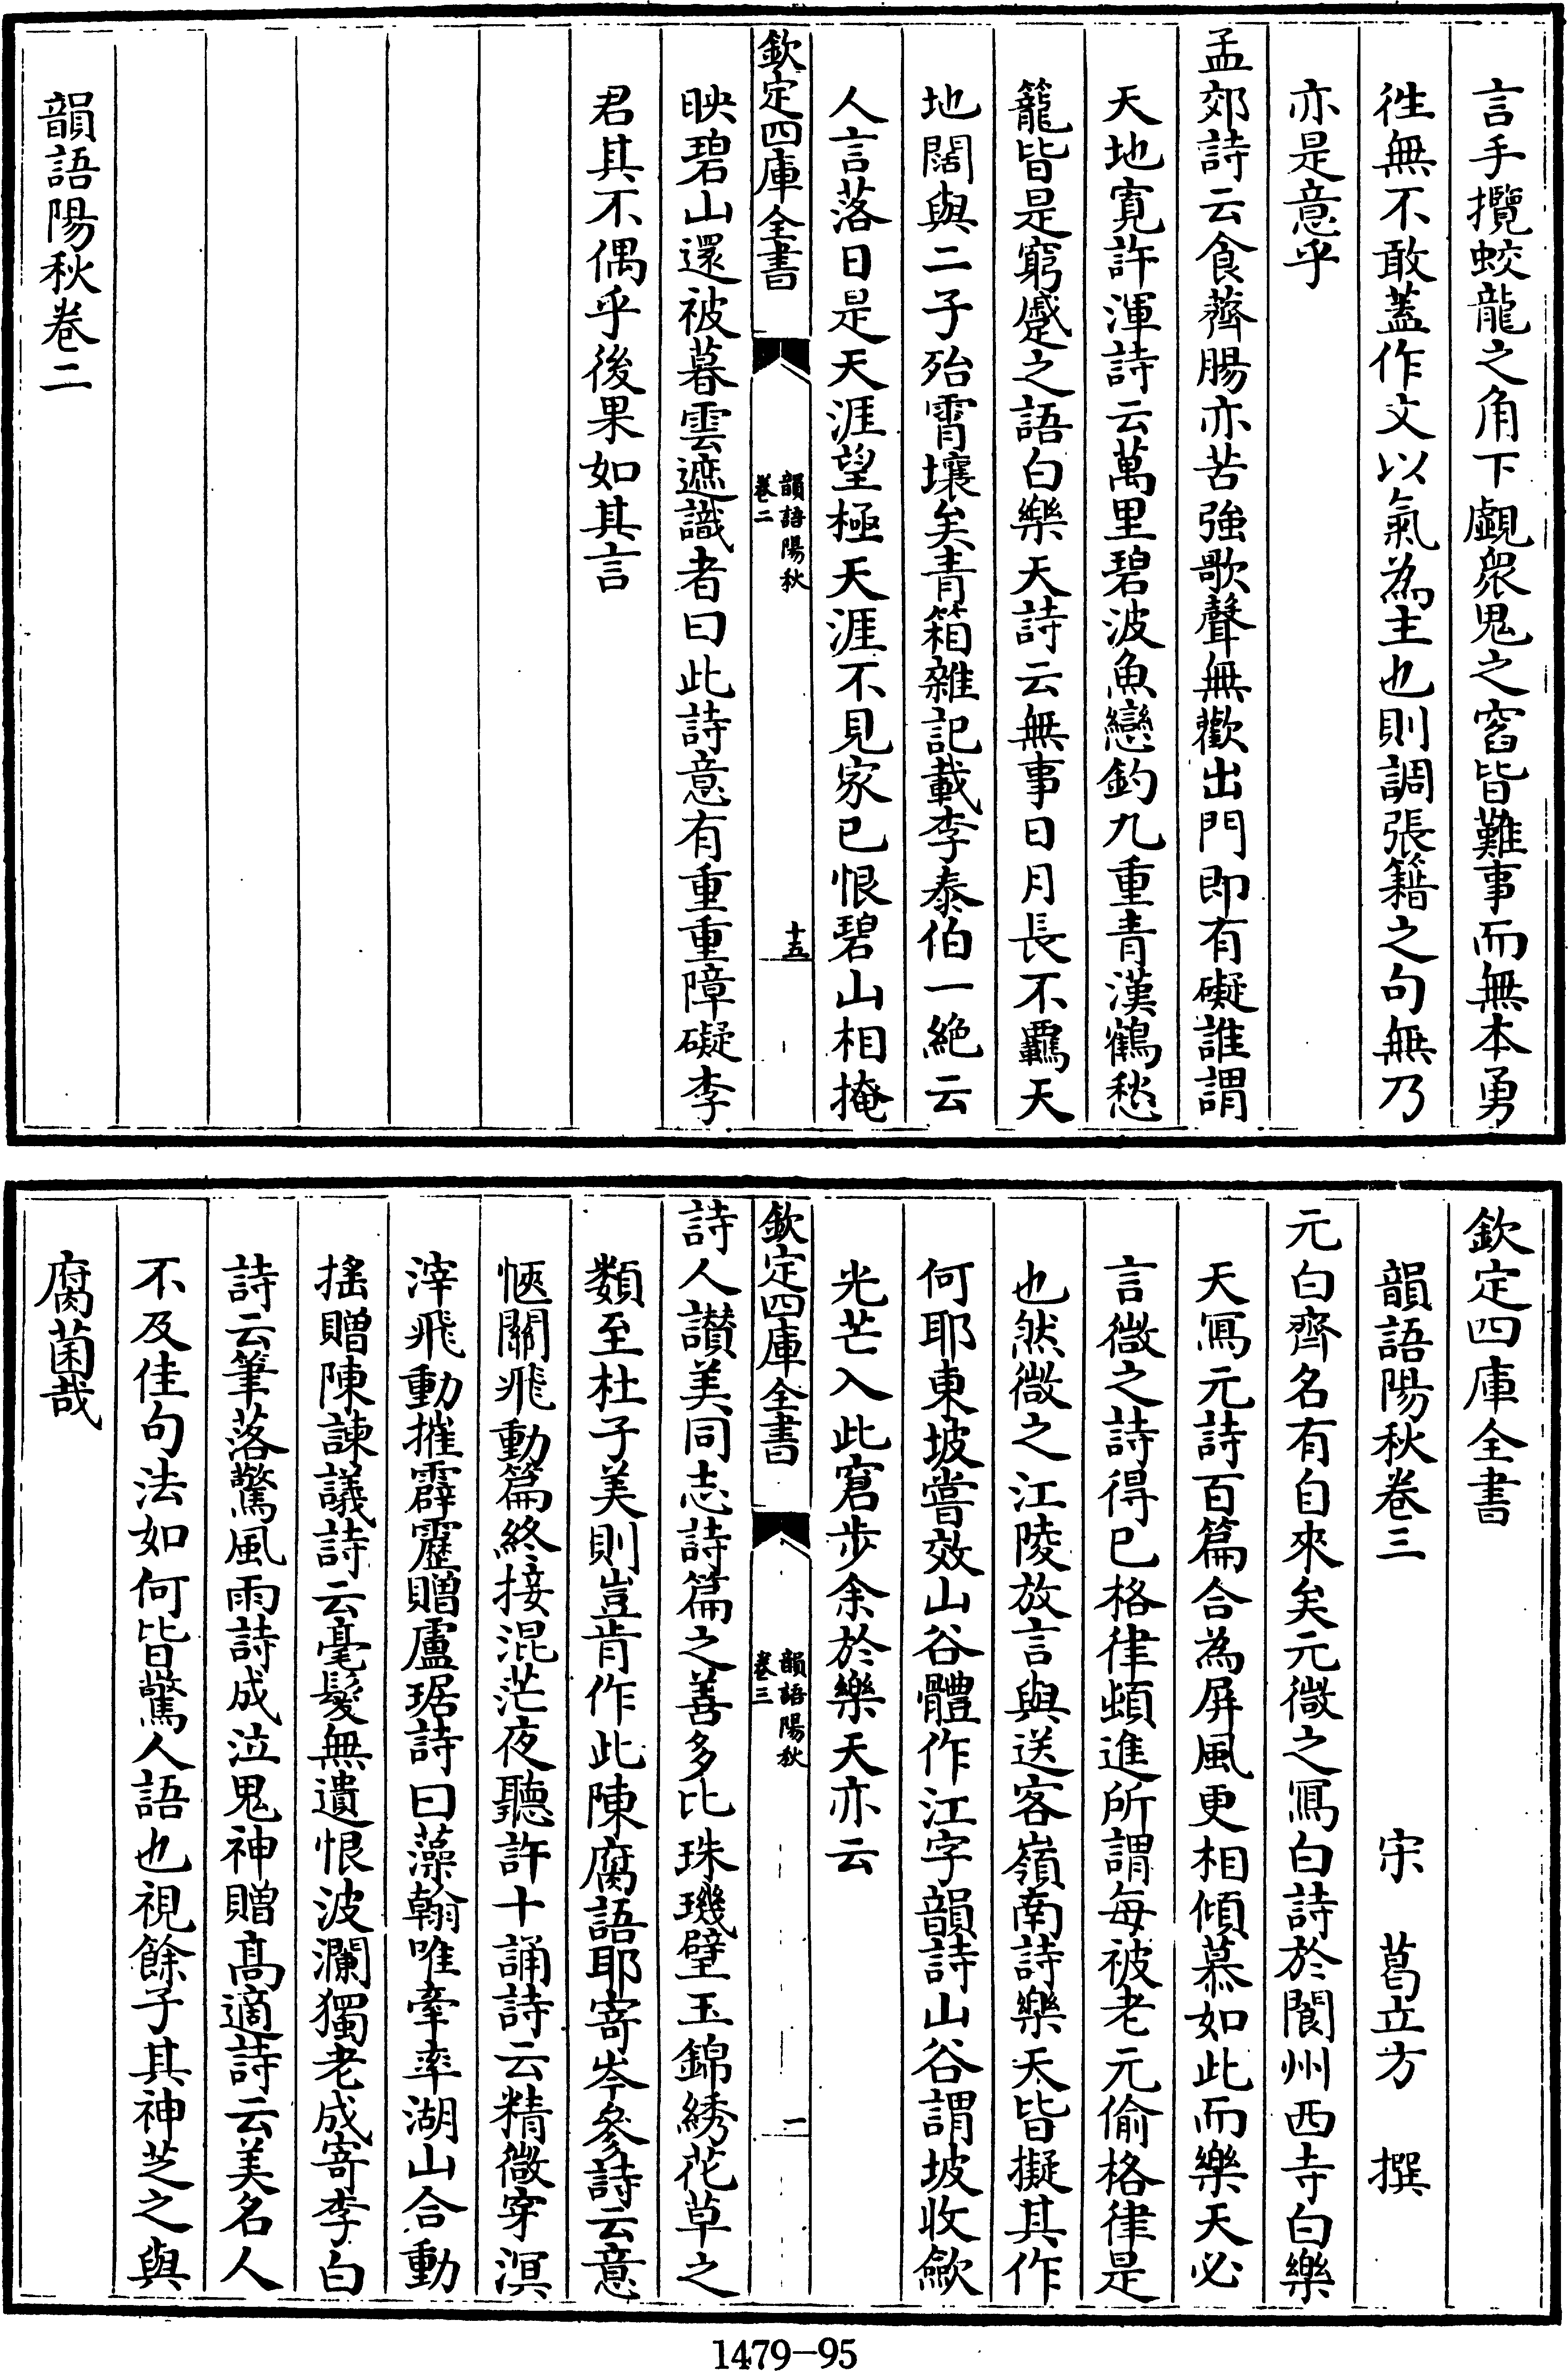 言手攬蛟龍之角下覷衆鬼之窞皆難事而無本勇
徃無不敢蓋作文以氣為主也則調張籍之句無乃
亦是意乎
孟郊詩云食薺腸亦苦強歌聲無歡出門即有礙誰謂
天地寛許渾詩云萬里碧波魚戀釣九重青漢鶴愁
籠皆是窮蹙之語白樂天詩云無事日月長不羈天
地闊與二子殆霄壤矣青箱雜記載李泰伯一絶云
人言落日是天涯望極天涯不見家已恨碧山相掩
欽定四庫全書
韻語陽秋
卷二
十五
映碧山還被暮雲遮識者曰此詩意有重重障礙李
君其不偶乎後果如其言
韻語陽秋卷二
欽定四庫全書
韻語陽秋卷三
宋 葛立方 撰
元白齊名有自來矣元微之寫白詩於閬州西寺白樂
天寫元詩百篇合為屏風更相傾慕如此而樂天必
言微之詩得已格律頓進所謂每被老元偷格律是
也然微之江陵放言與送客嶺南詩樂天皆擬其作
何耶東坡嘗效山谷體作江字韻詩山谷謂坡收歛
光芒入此窘步余於樂天亦云
欽定四庫全書
韻語陽秋
卷三
一
詩人讃美同志詩篇之善多比珠璣璧玉錦綉花草之
類至杜子美則豈肯作此陳腐語耶寄岑參詩云意
愜關飛動篇終接混茫夜聽許十誦詩云精微穿溟
涬飛動摧霹靂贈盧琚詩曰藻翰唯牽率湖山合動
揺贈陳諫議詩云毫髮無遺恨波瀾獨老成寄李白
詩云筆落驚風雨詩成泣鬼神贈髙適詩云美名人
不及佳句法如何皆驚人語也視餘子其神芝之與
腐菌哉
1479-95